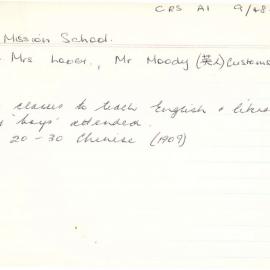 CRS A1 9/48
Mission School.
Mrs Lover, Mr Moody (英人) Customs
classes to teach English &
'boys' attended.
20-30 Chinese (1909)